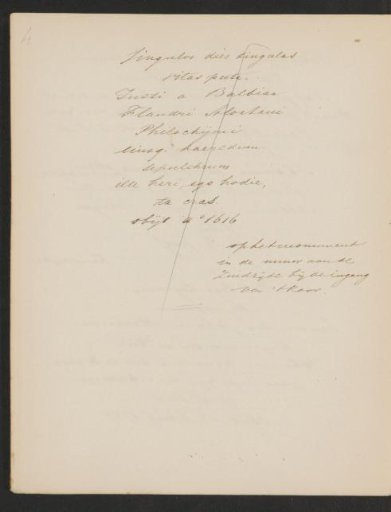 Singulos dies singulas
vitas puta.
Justi a Balbian
Flandri Alostani
Philochymi
eiusq haeredum
sepulchrum
ille heri, ego hodie,
tu cras
obijt Aº 1616
op het monument
in de muur aan de
Zuidzijde bij de ingang
van 't Koor.